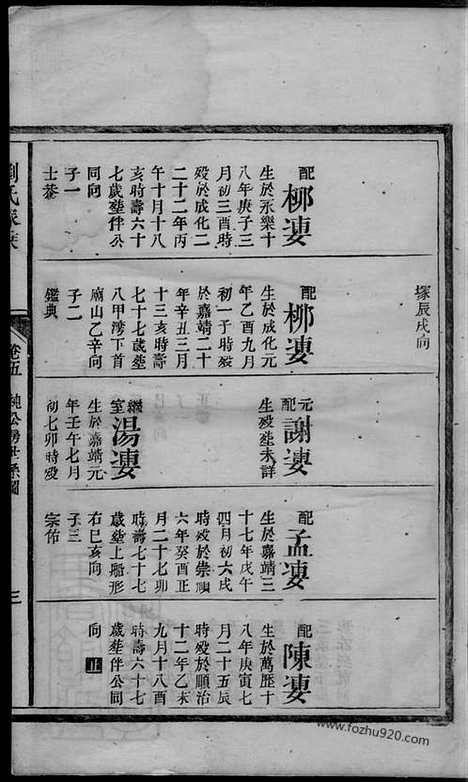 塚辰戌向
配
柳婆
生於永樂十
八年庚子三
月初三酉時
歿於成化二
十二年丙
午十月十八
亥時壽六十
七歲塟伴公
同向
子一
士
配
柳婆
生於成化元
年乙酉九月
初一子時歿
於嘉靖二十
年辛丑三月
十三亥時壽
七十七歲塟
八甲湾下首
廟山乙辛向
子二
鑑典
元配
謝婆
生歿塟未詳
繼室
湯婆
生於嘉靖元
年壬午七月
初七卯時歿
配
孟婆
生於嘉靖三
十七年戊午
四月初六戌
時歿於崇禎
六年癸酉正
月二十七卯
時壽七十七
歲塟上船形
右巳亥向
子三
宗佑
配
陳婆
生於萬歷十
八年庚寅七
月二十五辰
時歿於順治
十二年乙未
九月十八酉
時壽六十七
歲塟伴公同
向 止
劉氏家乘
卷五
純公房世系圖
三
www.fozhu920.com